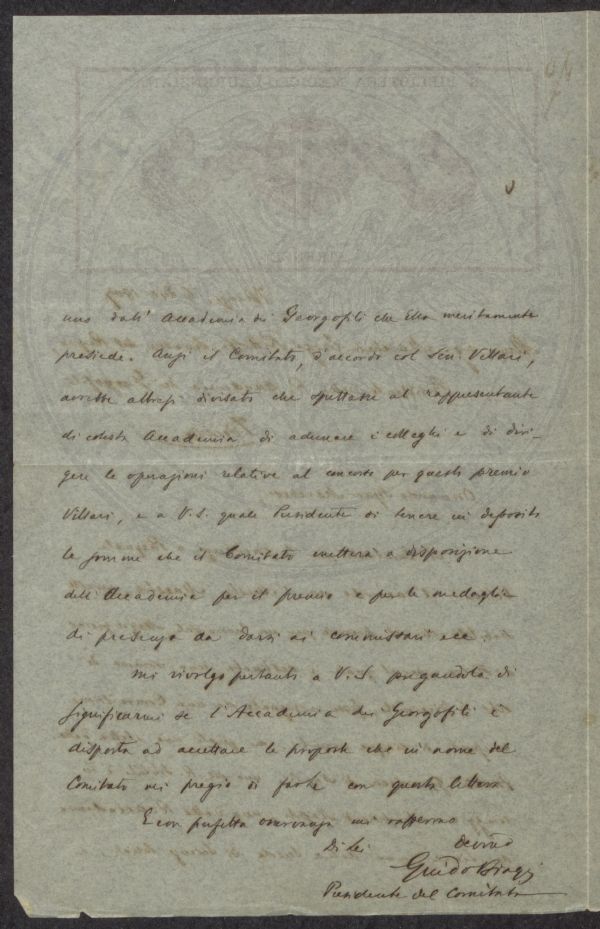 uno dall' Accademia dei Georgofili che Ella meritamente
presiede. Anzi il Comitato, d'accordo col Sen. Villari,
avrebbe altresì divisato che spettasse al rappresentante
di codesta Accademia di adunare i colleghi e di diri-
gere le operazioni relative al concorso per questo premio
Villari, e a V.S. quale Presidente di tenere in deposito
le somme che il Comitato metterà a disposizione
dell'Accademia per il premio e per le medaglie
di presenza da darsi ai commissari ecc.
Mi rivolgo pertanto a V.S. pregandola di
significarmi se l'Accademia dei Georgofili è
disposta ad accettare le proposte che in nome del
Comitato mi pregio di farle con questa lettera
E con perfetta osservanza mi raffermo
Di Lei
Devmo
Guido Biagi
Presidente del Comitato